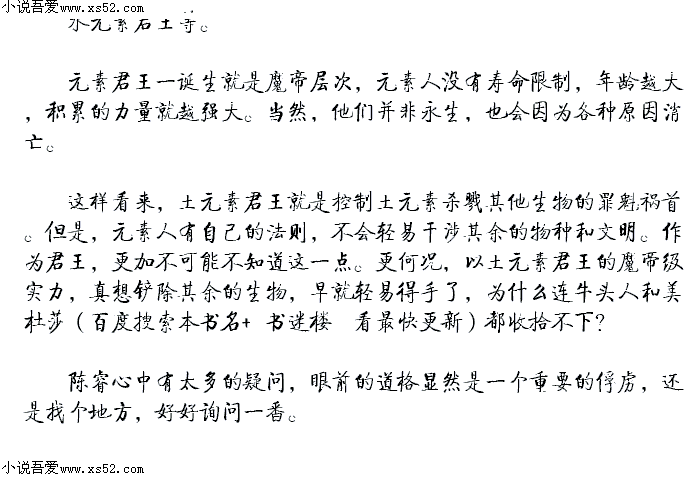 小说吾爱www.xs52.com
水元素君王等。
元素君王一诞生就是魔帝层次，元素人没有寿命限制，年龄越大
，积累的力量就越强大。当然，他们并非永生，也会因为各种原因消
亡。
这样看来，土元素君王就是控制土元素杀戮其他生物的罪魁祸首
。但是，元素人有自己的法则，不会轻易干涉其余的物种和文明。作
为君王，更加不可能不知道这一点。更何况，以土元素君王的魔帝级
实力，真想铲除其余的生物，早就轻易得手了，为什么连牛头人和美
杜莎（百度搜索本书名+ 书迷楼 看最快更新）都收拾不下？
陈睿心中有太多的疑问，眼前的道格显然是一个重要的俘虏，还
是找个地方，好好询问一番。
小说吾爱www.xs52.com
小说吾爱www.xs52.com